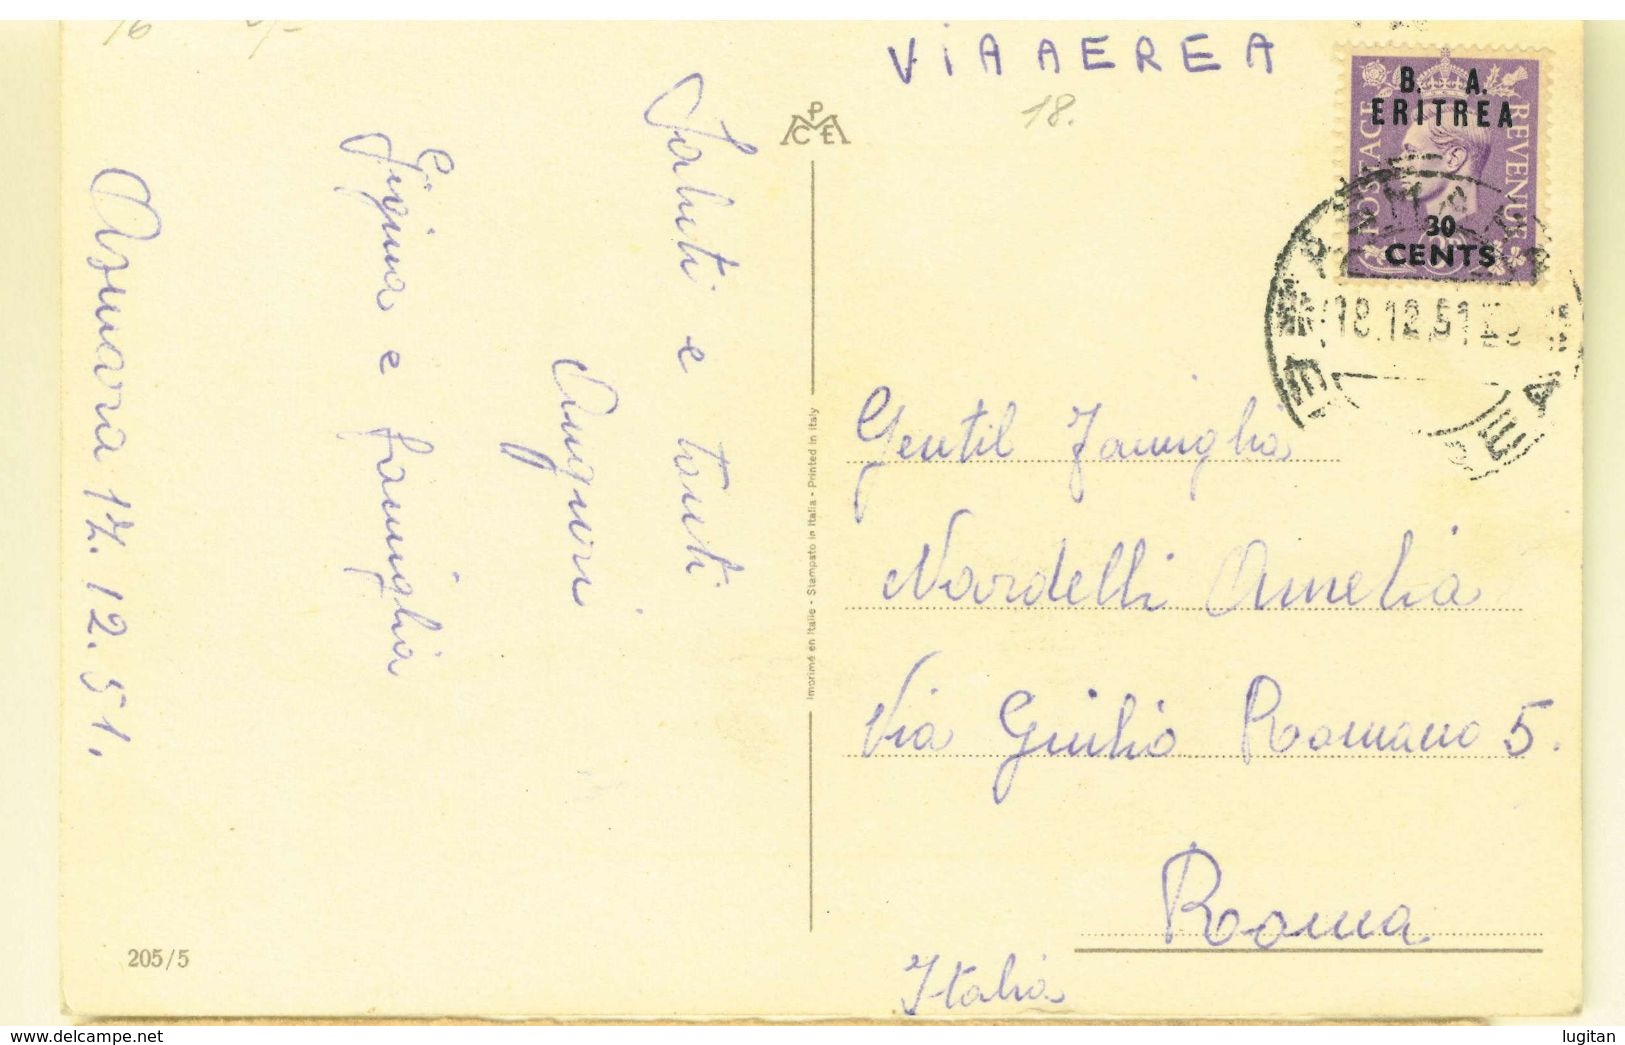 16
VIA AEREA
18.
B. A.
ERITREA
POSTAGE
REVENUE
30
CENTS
18.12.51
P
CE
Saluti e tanti
Auguri
Gigina e famiglia
Asmara 17.12.51.
Imprimé en Italie - Stampato in Italia - Printed in Italy
Gentil Famiglia
Nardelli Amelia
Via Giulio Romano 5.
Roma
Italia
205/5
www.delcampe.net
lugitan